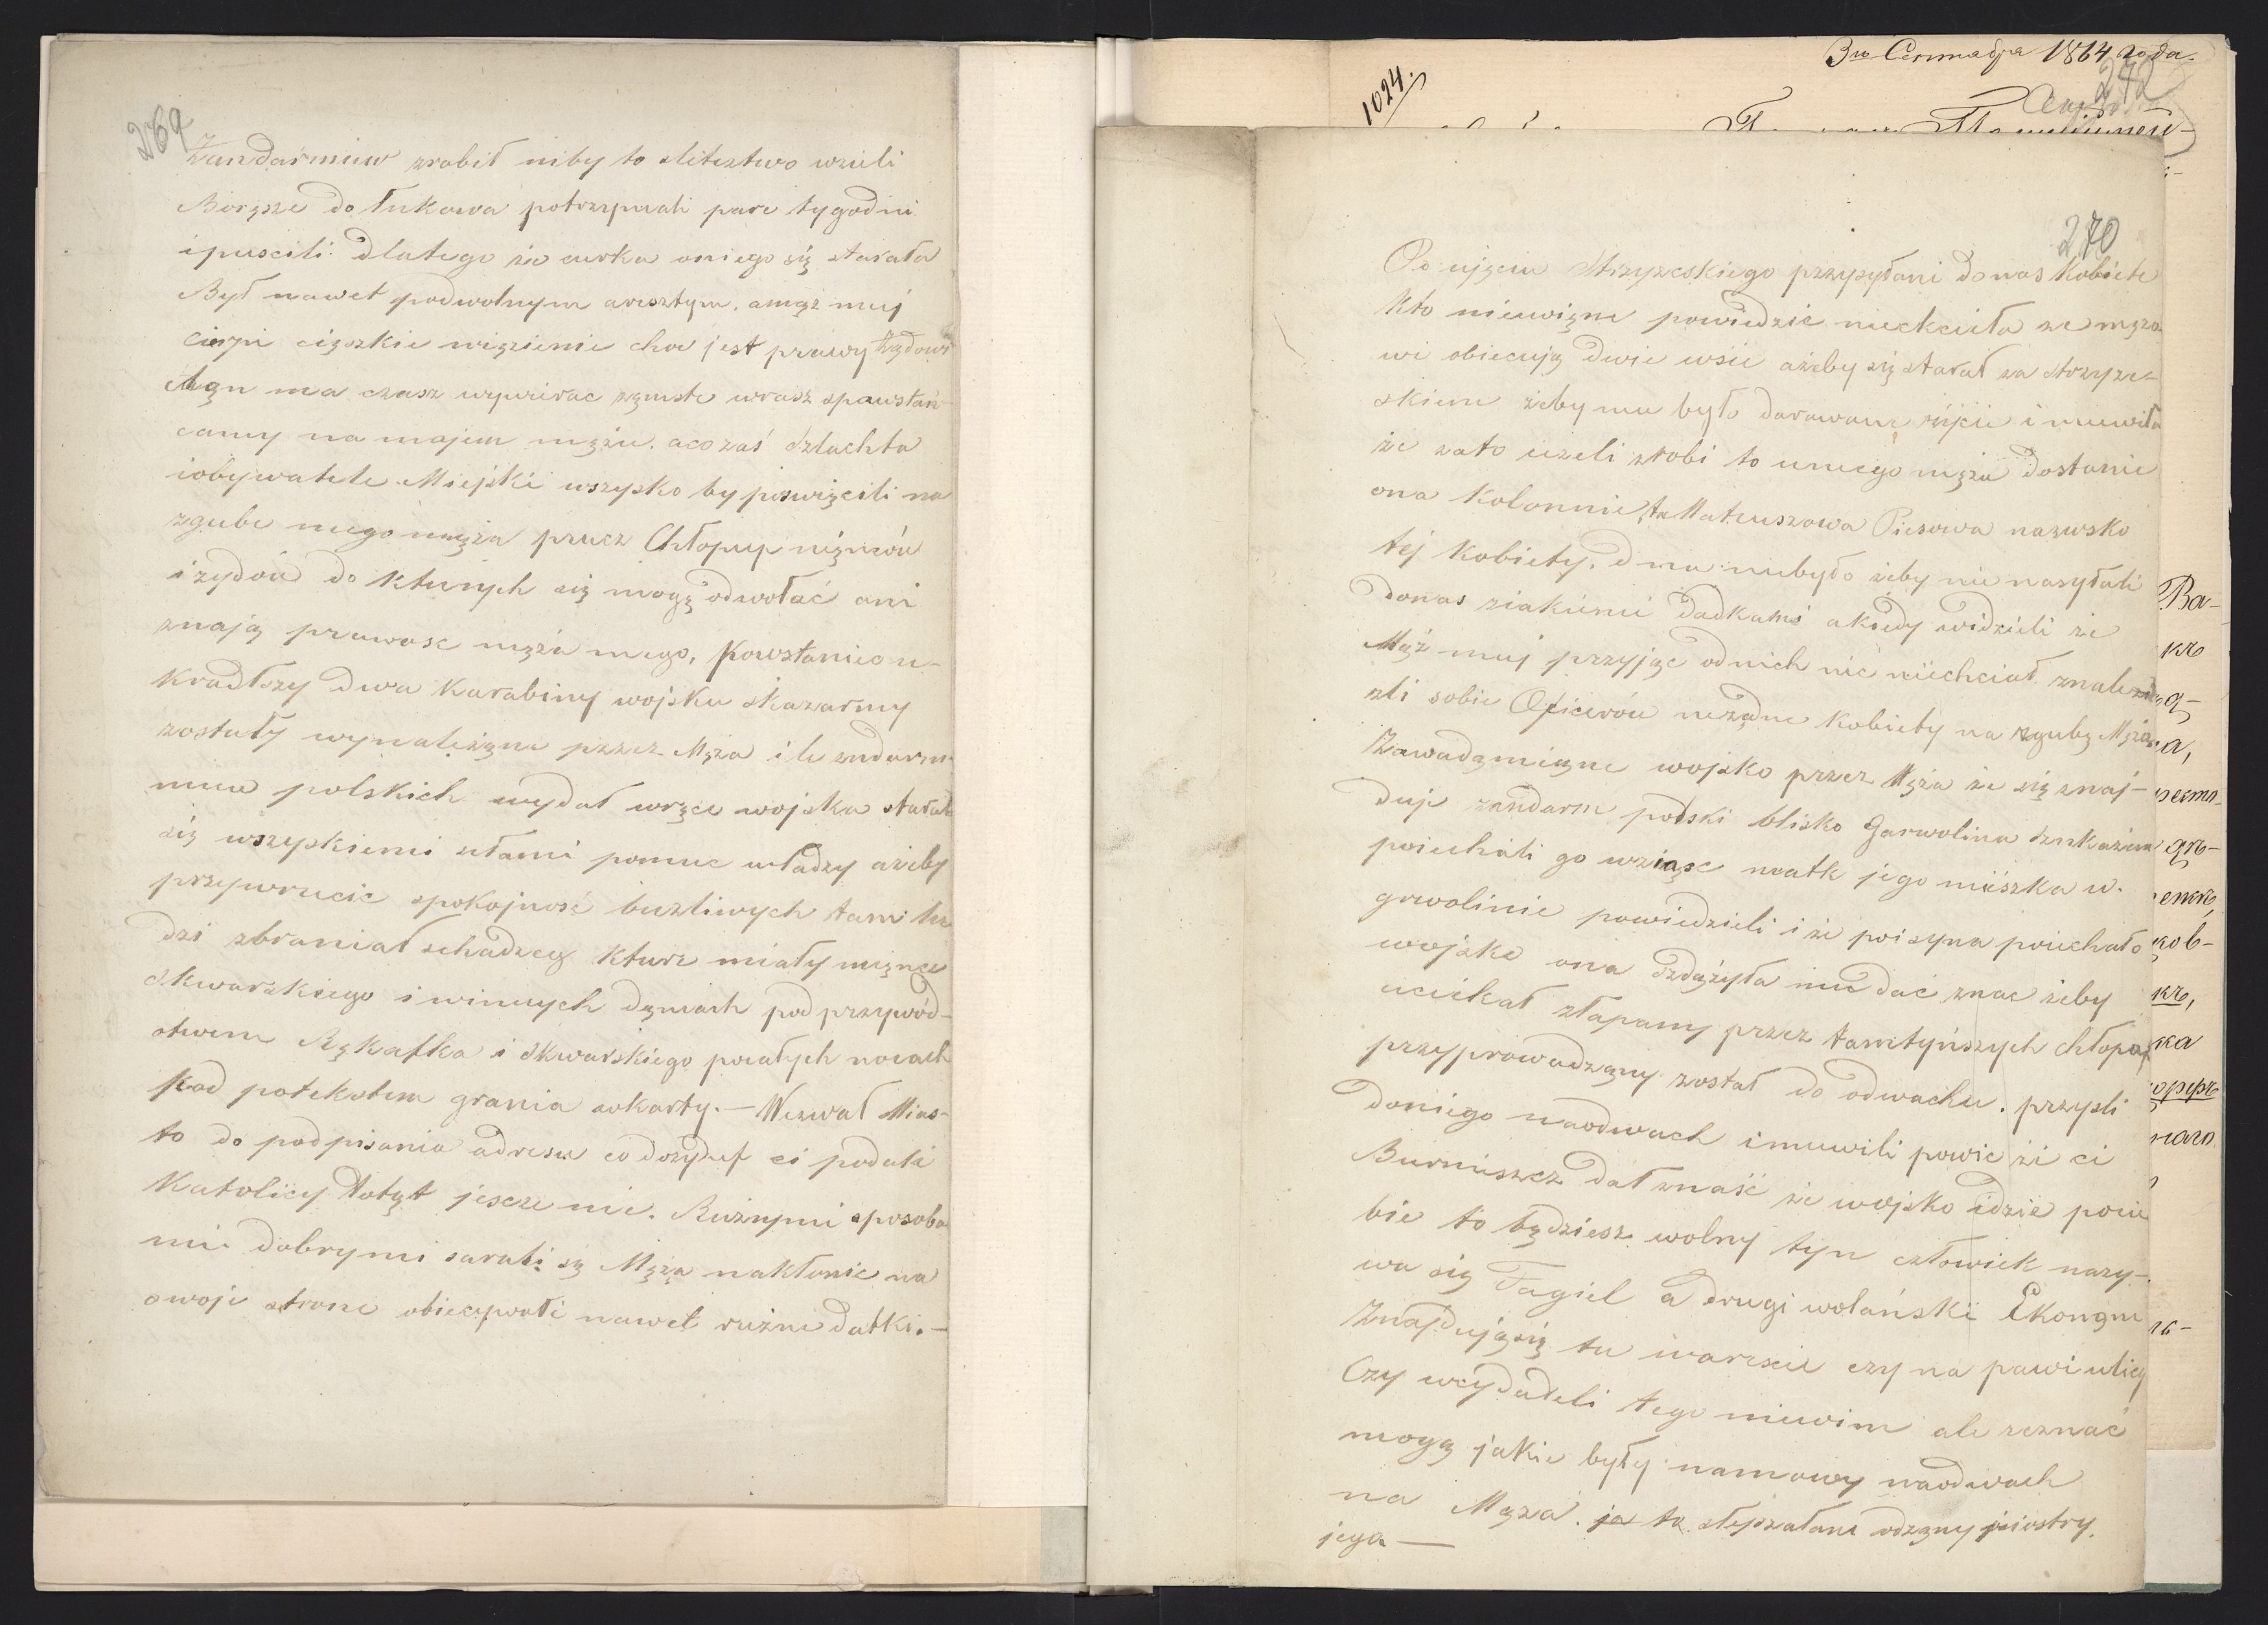 269
Zandarmuw zrobił niby to slitsztwo wzieli
Borysze do Łukowa potrzymali pare tygodni
i puscili. Dlatego że curka oniego się starała
Był nawet podwolnym aresztym. a mąż muj
cierpi ciężkie więzienie choc jest prawy Rządowi
ma czasz wywirac zemste wrasz spowstań-
camy na mojem mężu. aco zaś szlachta
i obywatele Miejski wszysko by poswięcili na
zgube mego męża prucz Chłopup
i zydów do kturych się mogę odwołać oni
znają prawosc męża mego. Powstanice u-
kradłszy dwa karabiny wojsku skazarmy
zostały wynalezione przez Męża ile zndarm-
muw polskich wydał wręce wojska starał
się wszyskiemi siłami pomuc władzy ażeby
przywrucic spokojność buztiwych tam lu
dzi zbraniał schadzey kture miały
Skwarskiego i winnych dęmach pod przywód-
stwem Rękafka i Skwarskiego pocałych nocach
pod potekstem grania wkarty. — Wezwał Mias-
to do podpisania adresu co dozyduf ci podali
Katolicy dotąt jescze nie. Riuznymi sposoba
mi dobrymi sarali są Męża nakłonic na
swoje strone obiecywali nawet ruzne datki. —
3го Сентября 1864 года.
242
1024.
270
Po ujęciu Strzyzeskiego przysyłani do nas Kobiete
kto niewiem powiedzić niechciała ze męzo
wi obiecują dwie wsie ażeby się starał za Strzyze-
skiem żeby mu było darowane życie i muwiła
że zato iezeli zrobi to umego męża dostanie
ona kolonnie, ta Mateuszowa Piesowa nazwsko
tej kobiety. dnia niebyło żeby nie nasyłali
donas ziakiemi dadkami a kiedy widzieli że
Mąż muj przyjąc odnich nic niechciał znalezi
zli sobie Oficerów nezdne kobiety na zgubę Męża
Zawadamiąne wojsko przez Męża że się znaj-
duje zandarm polski blisko Garwolina
poiechali go wziąsc matk jego mieszka w
grwolinie powiedzieli i że poisyna poiechało
wojsko ona zdążyła mu dać znac żeby
uciekał złapany przez tamtyńszych chłopuf
przyprowadzony został do odwachu. przysli
doniego naodwach i muwili powic że ci
Burmiszcz dał znaść że wojsko idzie powi
bie to będziesz wolny tyn człowiek nazy-
wa się Fagiel a drugi wolański Ekonom
Znajdująsię tu warescie czy na pawi ulicy
Czy wydadeli tego niewim ale zeznać
mogą jakie były namowy naodwach
na Męza. ja to słyszałam odzony jsiostry.
jega —
Ва-
къ
а,
енскъ,
ков-
къ,
ка
наго